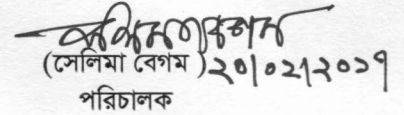 (সেলিমা বেগম) ২০/০২/২০১৭
পরিচালক